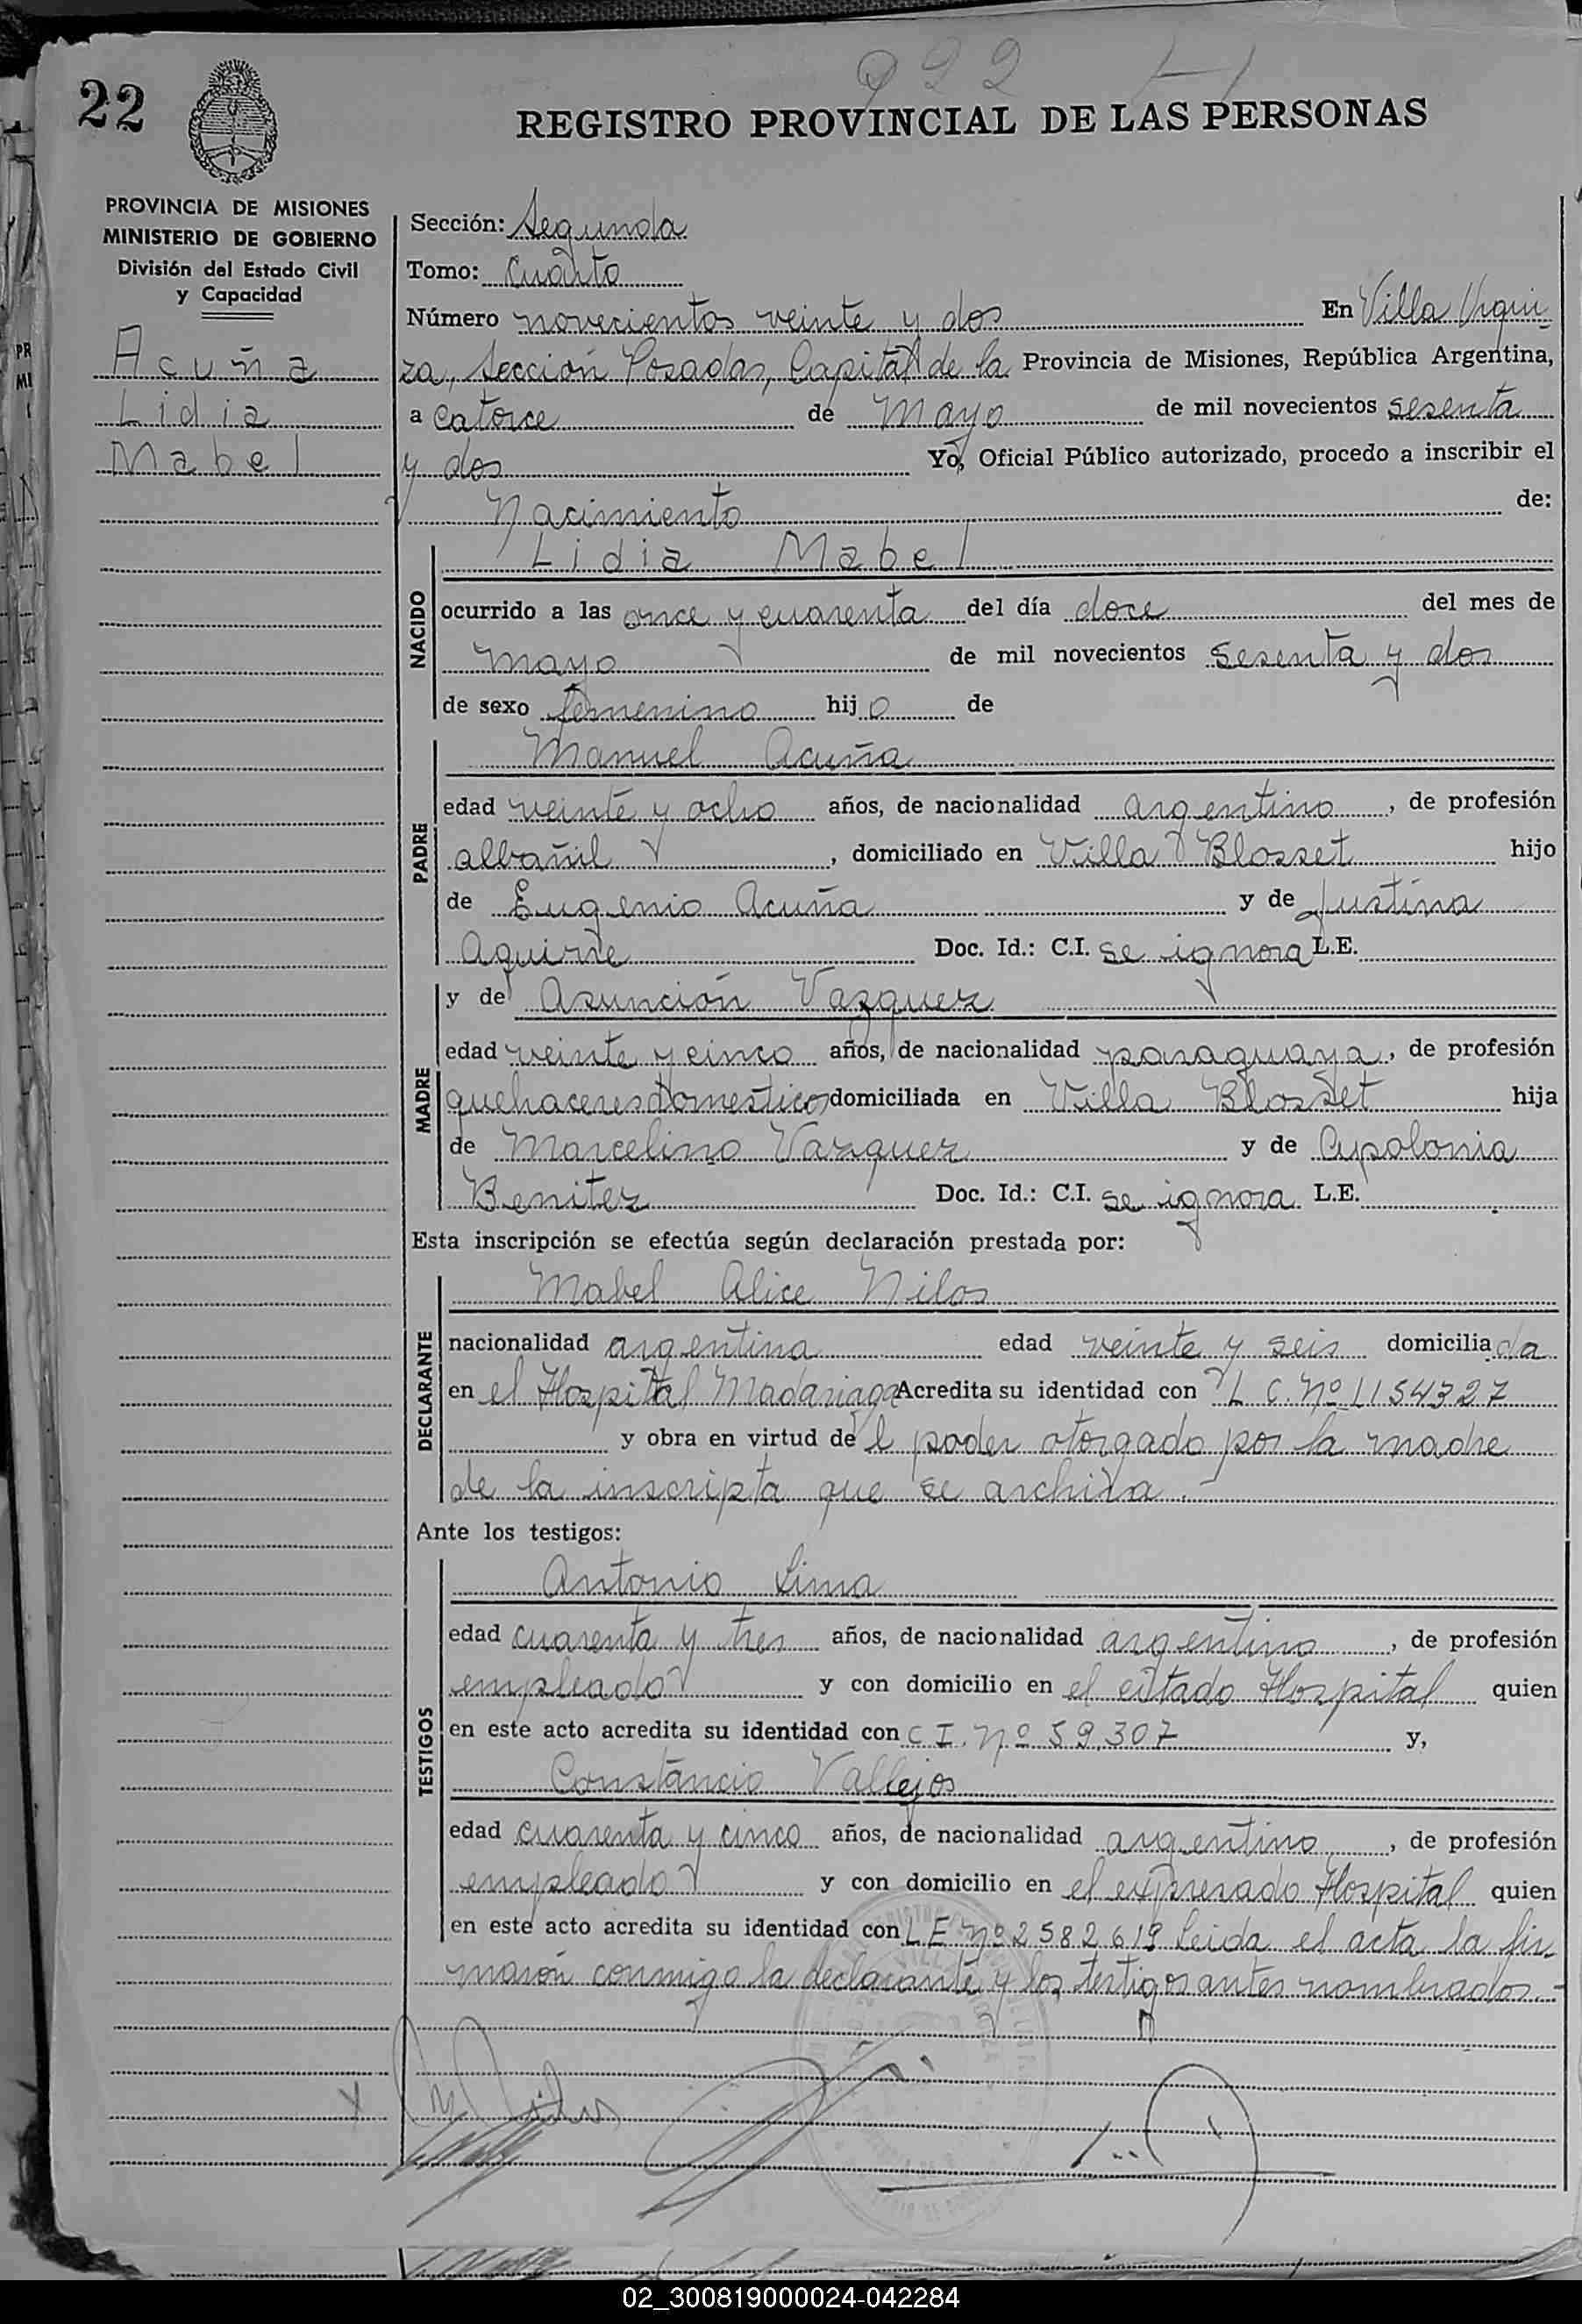 922
22
REGISTRO PROVINCIAL DE LAS PERSONAS
PROVINCIA DE MISIONES
MINISTERIO DE GOBIERNO
División del Estado Civil
y Capacidad
Acuña
Lidia
Mabel
Sección: Segunda
Tomo: Cuarto
Número novecientos veinte y dos En Villa Urqui-
za, Sección Posadas, Capital de la Provincia de Misiones, República Argentina,
a catorce de Mayo de mil novecientos sesenta
y dos Yo, Oficial Público autorizado, procedo a inscribir el
Nacimiento de:
NACIDO
Lidia Mabel
ocurrido a las once y cuarenta del día doce del mes de
mayo de mil novecientos sesenta y dos
de sexo femenino hijo de
PADRE
Manuel Acuña
edad veinte y ocho años, de nacionalidad argentino, de profesión
albañil, domiciliado en Villa Blosset hijo
de Eugenio Acuña y de Justina
Aguirre Doc. Id.: C.I. se ignora L.E.
MADRE
y de Asunción Vazquez
edad veinte y cinco años, de nacionalidad paraguaya, de profesión
quehaceres domesticos domiciliada en Villa Blosset hija
de Marcelino Vazquez y de Apolonia
Benitez Doc. Id.: C.I. se ignora L.E.
Esta inscripción se efectúa según declaración prestada por:
DECLARANTE
Mabel Alice Nilos
nacionalidad argentina edad veinte y seis domiciliada
en el Hospital Madariaga Acredita su identidad con L C. Nº 1154327
y obra en virtud del poder otorgado por la madre
de la inscripta que se archiva.-
Ante los testigos:
TESTIGOS
Antonio Lima
edad cuarenta y tres años, de nacionalidad argentino, de profesión
empleado y con domicilio en el citado Hospital quien
en este acto acredita su identidad con C I. Nº 59.307 y,
Constancio Vallejos
edad cuarenta y cinco años, de nacionalidad argentino, de profesión
empleado y con domicilio en el expresado Hospital quien
en este acto acredita su identidad con L E Nº 2582619 Leida el acta la fir-
maron conmigo la declarante y los testigos antes nombrados.-
02_300819000024-042284